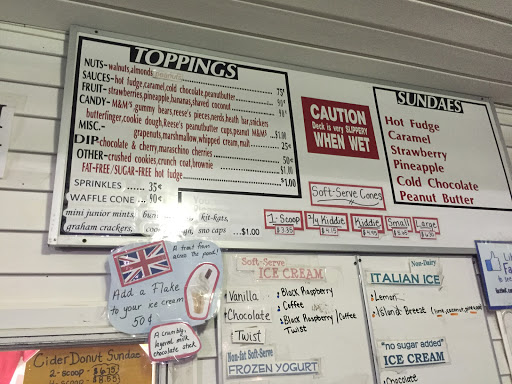 TOPPINGS
NUTS-walnuts,almonds,
SAUCES-hot fudge,caramel,cold chocolate,peanutbutter 75¢
FRUIT-strawberries,pineapple,bananas,shaved coconut 90¢
CANDY-M&M's,gummy bears,reese's pieces,nerds,heath bar,snickers
butterfinger,cookie dough,Reese's peanutbutter cups,peanut M&MS $1.00
MISC.- grapenuts,marshmallow,whipped cream,malt 25¢
DIP-chocolate & cherry,maraschino cherries 50¢
OTHER-crushed cookies,crunch coat,brownie $1.00
FAT-FREE/SUGAR-FREE hot fudge $1.00
SPRINKLES 35¢
WAFFLE CONE 90¢
mini junior mints, kit-kats,
graham crackers, sno caps ...$1.00
CAUTION
Deck is very SLIPPERY
WHEN WET
SUNDAES
Hot Fudge
Caramel
Strawberry
Pineapple
Cold Chocolate
Peanut Butter
Soft-Serve Cones
1-Scoop Kiddie Kiddie Small Large
A treat from across the pond!
Add a Flake
to your ice cream
50¢
A crumbly,
layered milk
chocolate stick
Cider Donut Sundae
2-scoop -
4-scoop -
Soft-Serve
ICE CREAM
Vanilla
Chocolate
Twist
Black Raspberry
Coffee
Black Raspberry/Coffee
Twist
Non-fat Soft-Serve
FROZEN YOGURT
Non-Dairy
ITALIAN ICE
Lemon
Island Breeze
"no sugar added"
ICE CREAM
Chocolate